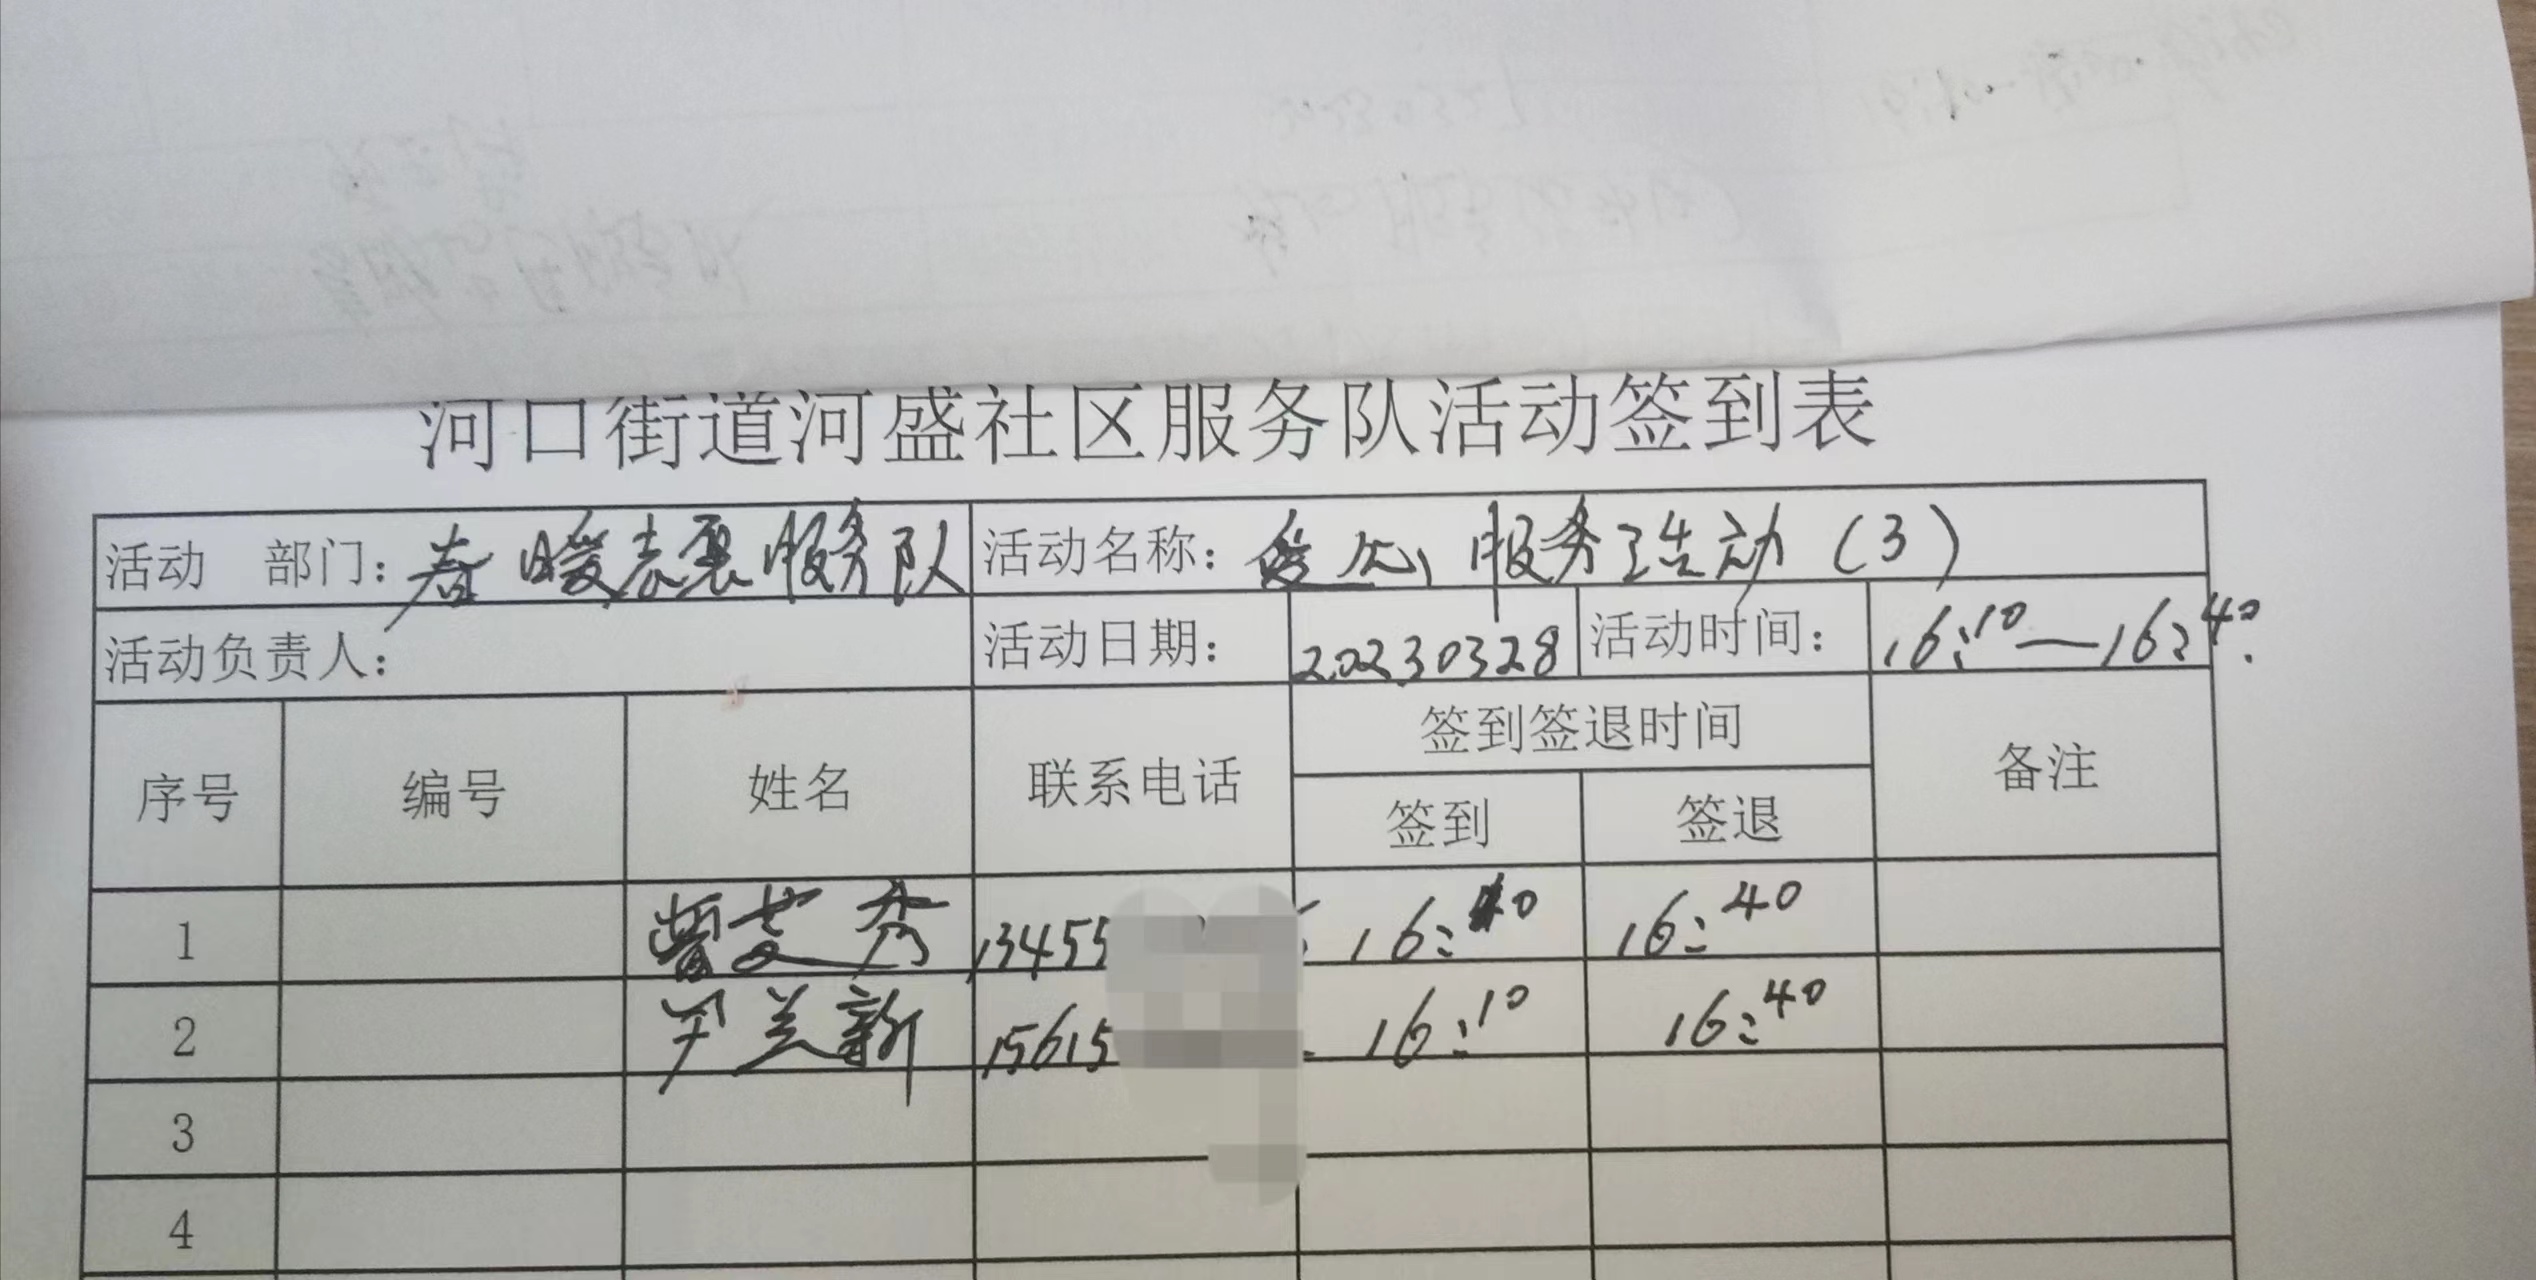 河口街道河盛社区服务队活动签到表
活动 部门：春暖志愿服务队 活动名称： 服务活动（3）
活动负责人： 活动日期： 20230328 活动时间： 16:10—16:40
序号 编号 姓名 联系电话 签到签退时间 备注
签到 签退
1 曹艾秀 13455 16:10 16:40
2 尹兰新 15615 16:10 16:40
3
4